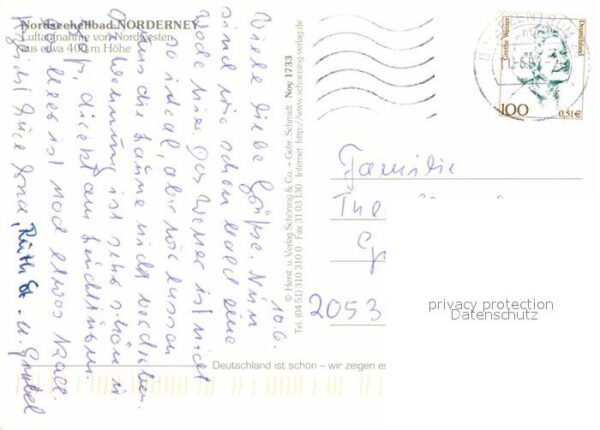 Nordseeheilbad NORDERNEY
Luftaufnahme von Nordwesten
aus etwa 400 m Höhe
10.6.
Viele liebe Grüße. Nun
sind wir schon bald eine
Woche hier. Das Wetter ist nicht
so ideal, aber wir lassen
uns die Laune nicht verderben.
Wohnung ist sehr schön u.
direkt am Leuchtturm.
alles ist etwas
Ruth u.
© Herst. u. Verlag Schöning & Co. + Gebr. Schmidt Noy 1733
Tel. (04 51) 310 310 0 Fax 31 03 130 Internet: http://www.schoening-verlag.de
Grethe Weiser
Deutschland
100
0,51 €
Familie
The
2053
privacy protection
Datenschutz
Deutschland ist schön – wir zeigen es